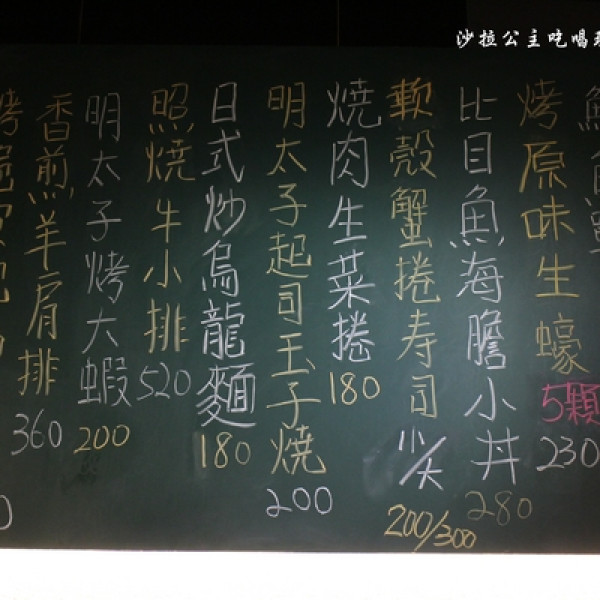 沙拉公主吃喝
烤原味生蠔
5顆
230
比目魚海膽小丼
280
軟殼蟹捲寿司
小/大
200/300
燒肉生菜捲
180
明太子起司玉子燒
200
日式炒烏龍麵
180
照燒牛小排
520
明太子烤大蝦
200
香煎羊肩排
360